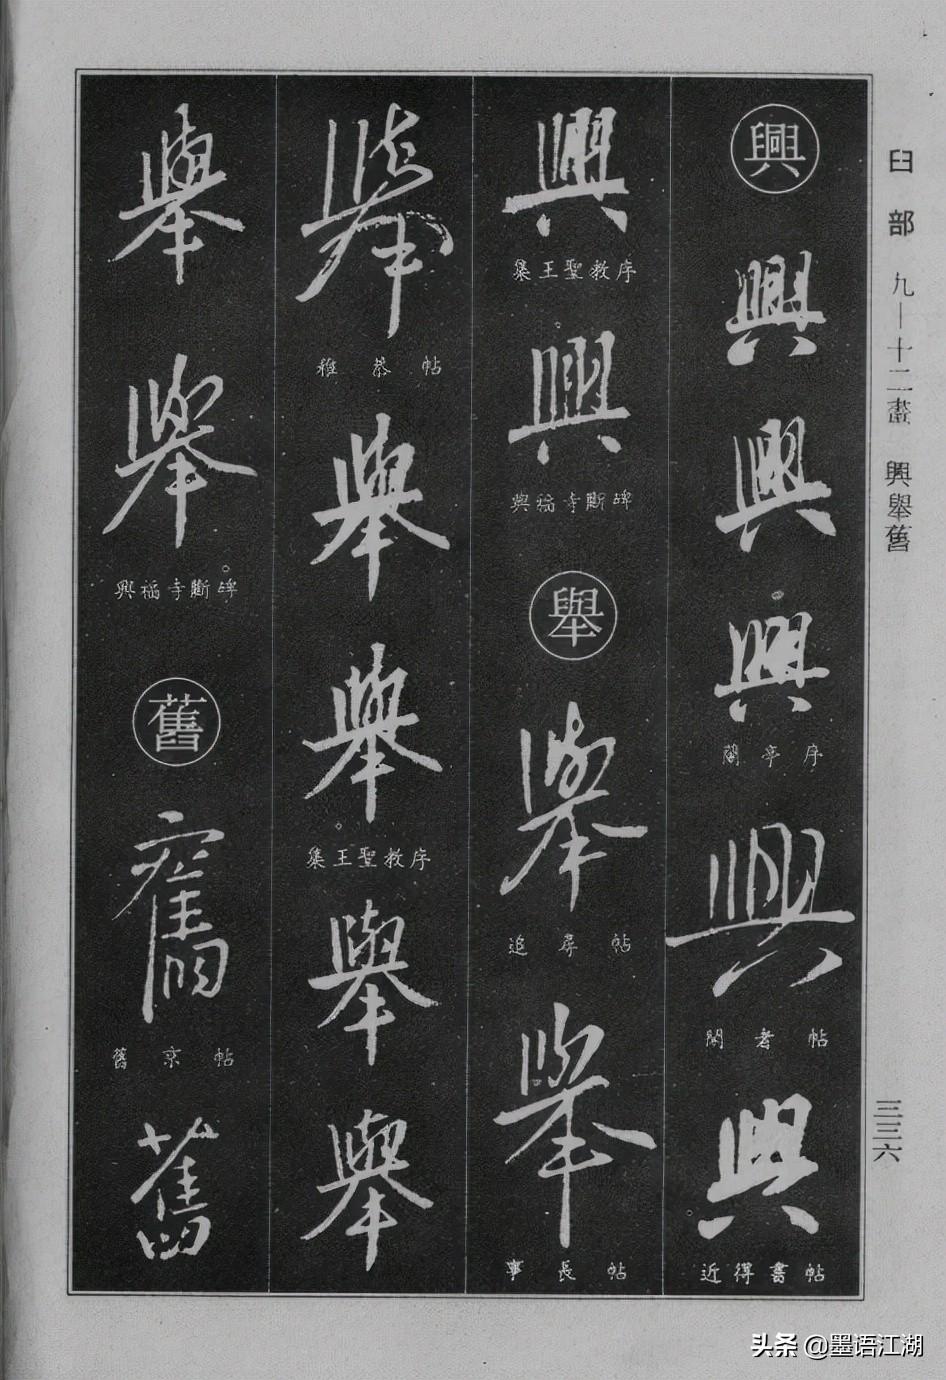 臼部 九—十二畫 興舉舊
三三六
興
興
興
興
蘭亭序
興
闊者帖
興
近得書帖
興
集王聖教序
興
興福寺斷碑
舉
舉
追尋帖
舉
事長帖
舉
稚恭帖
舉
舉
集王聖教序
舉
舉
舉
舉
興福寺斷碑
舊
舊
舊京帖
舊
头条 @墨语江湖